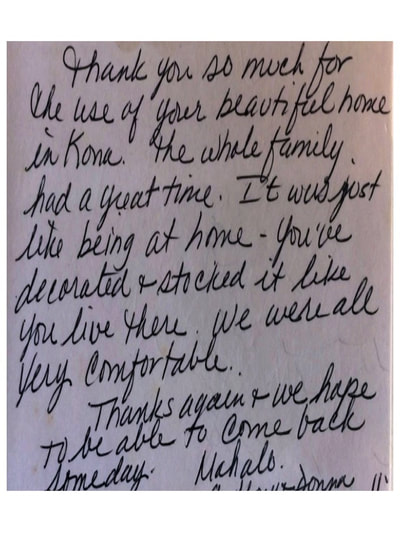 Thank you so much for
the use of your beautiful home
in Kona. The whole family
had a great time. It was just
like being at home - you've
decorated + stocked it like
you live there. We were all
very comfortable.
Thanks again + we hope
to be able to come back
someday. Mahalo.
Donna